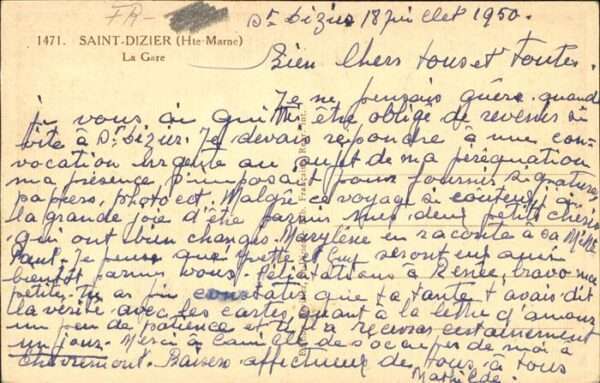 FR-
St Dizier 18 juillet 1950.
1471. SAINT-DIZIER (Hte-Marne)
La Gare
Bien Chers tous et toutes.
Je ne pensais guère quand
je vous ai quitté être obligé de revenir si
vite à St Dizier. Je devais répondre à une con-
vocation urgente au sujet de ma péréquation
ma présence s'imposant pour fournir signatures,
papiers, photo ect. Malgré ce voyage si couteux j'ai
la grande joie d'être parmi mes deux petits chéris
qui ont bien changés. Marylène en raconte à sa Mémé
Paul. Je pense que Yvette et Guy seront eux aussi
bientôt parmi vous. Félicitations à Renée, bravo ma
petite. Tu as pu constater que ta tante t'avais dit
la vérité avec les cartes, quant à la lettre d'amour
un peu de patience et tu la recevras certainement
un jour. Merci à Camille de s'occuper de moi à
Chèvremont. Baisers affectueux de tous à tous
Mathilde.